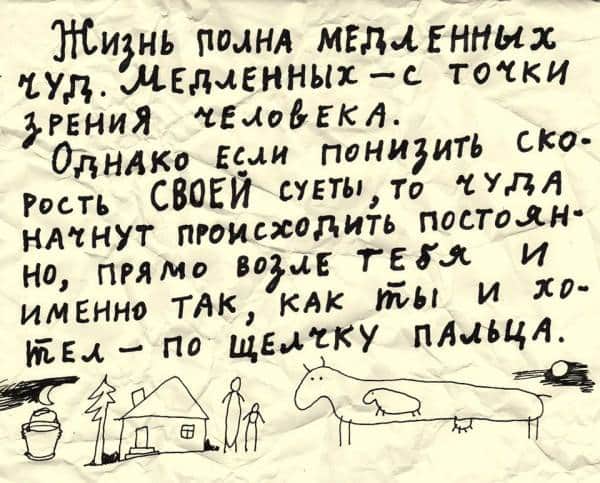 Жизнь полна медленных
чуд. Медленных – с точки
зрения человека.
Однако если понизить ско-
рость СВОЕЙ суеты, то чуда
начнут происходить постоян-
но, прямо возле тебя и
именно так, как ты и хо-
тел – по щелчку пальца.